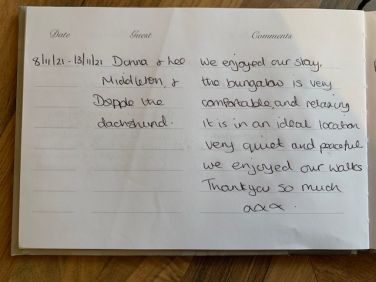 Date Guest Comments
8/11/21 - 13/11/21 Donna & Lee We enjoyed our stay.
Middleton & the bungalow is very
Dapple the comfortable, and relaxing
dachshund. it is in an ideal location
very quiet and peaceful
we enjoyed our walks
Thankyou so much
xxx.